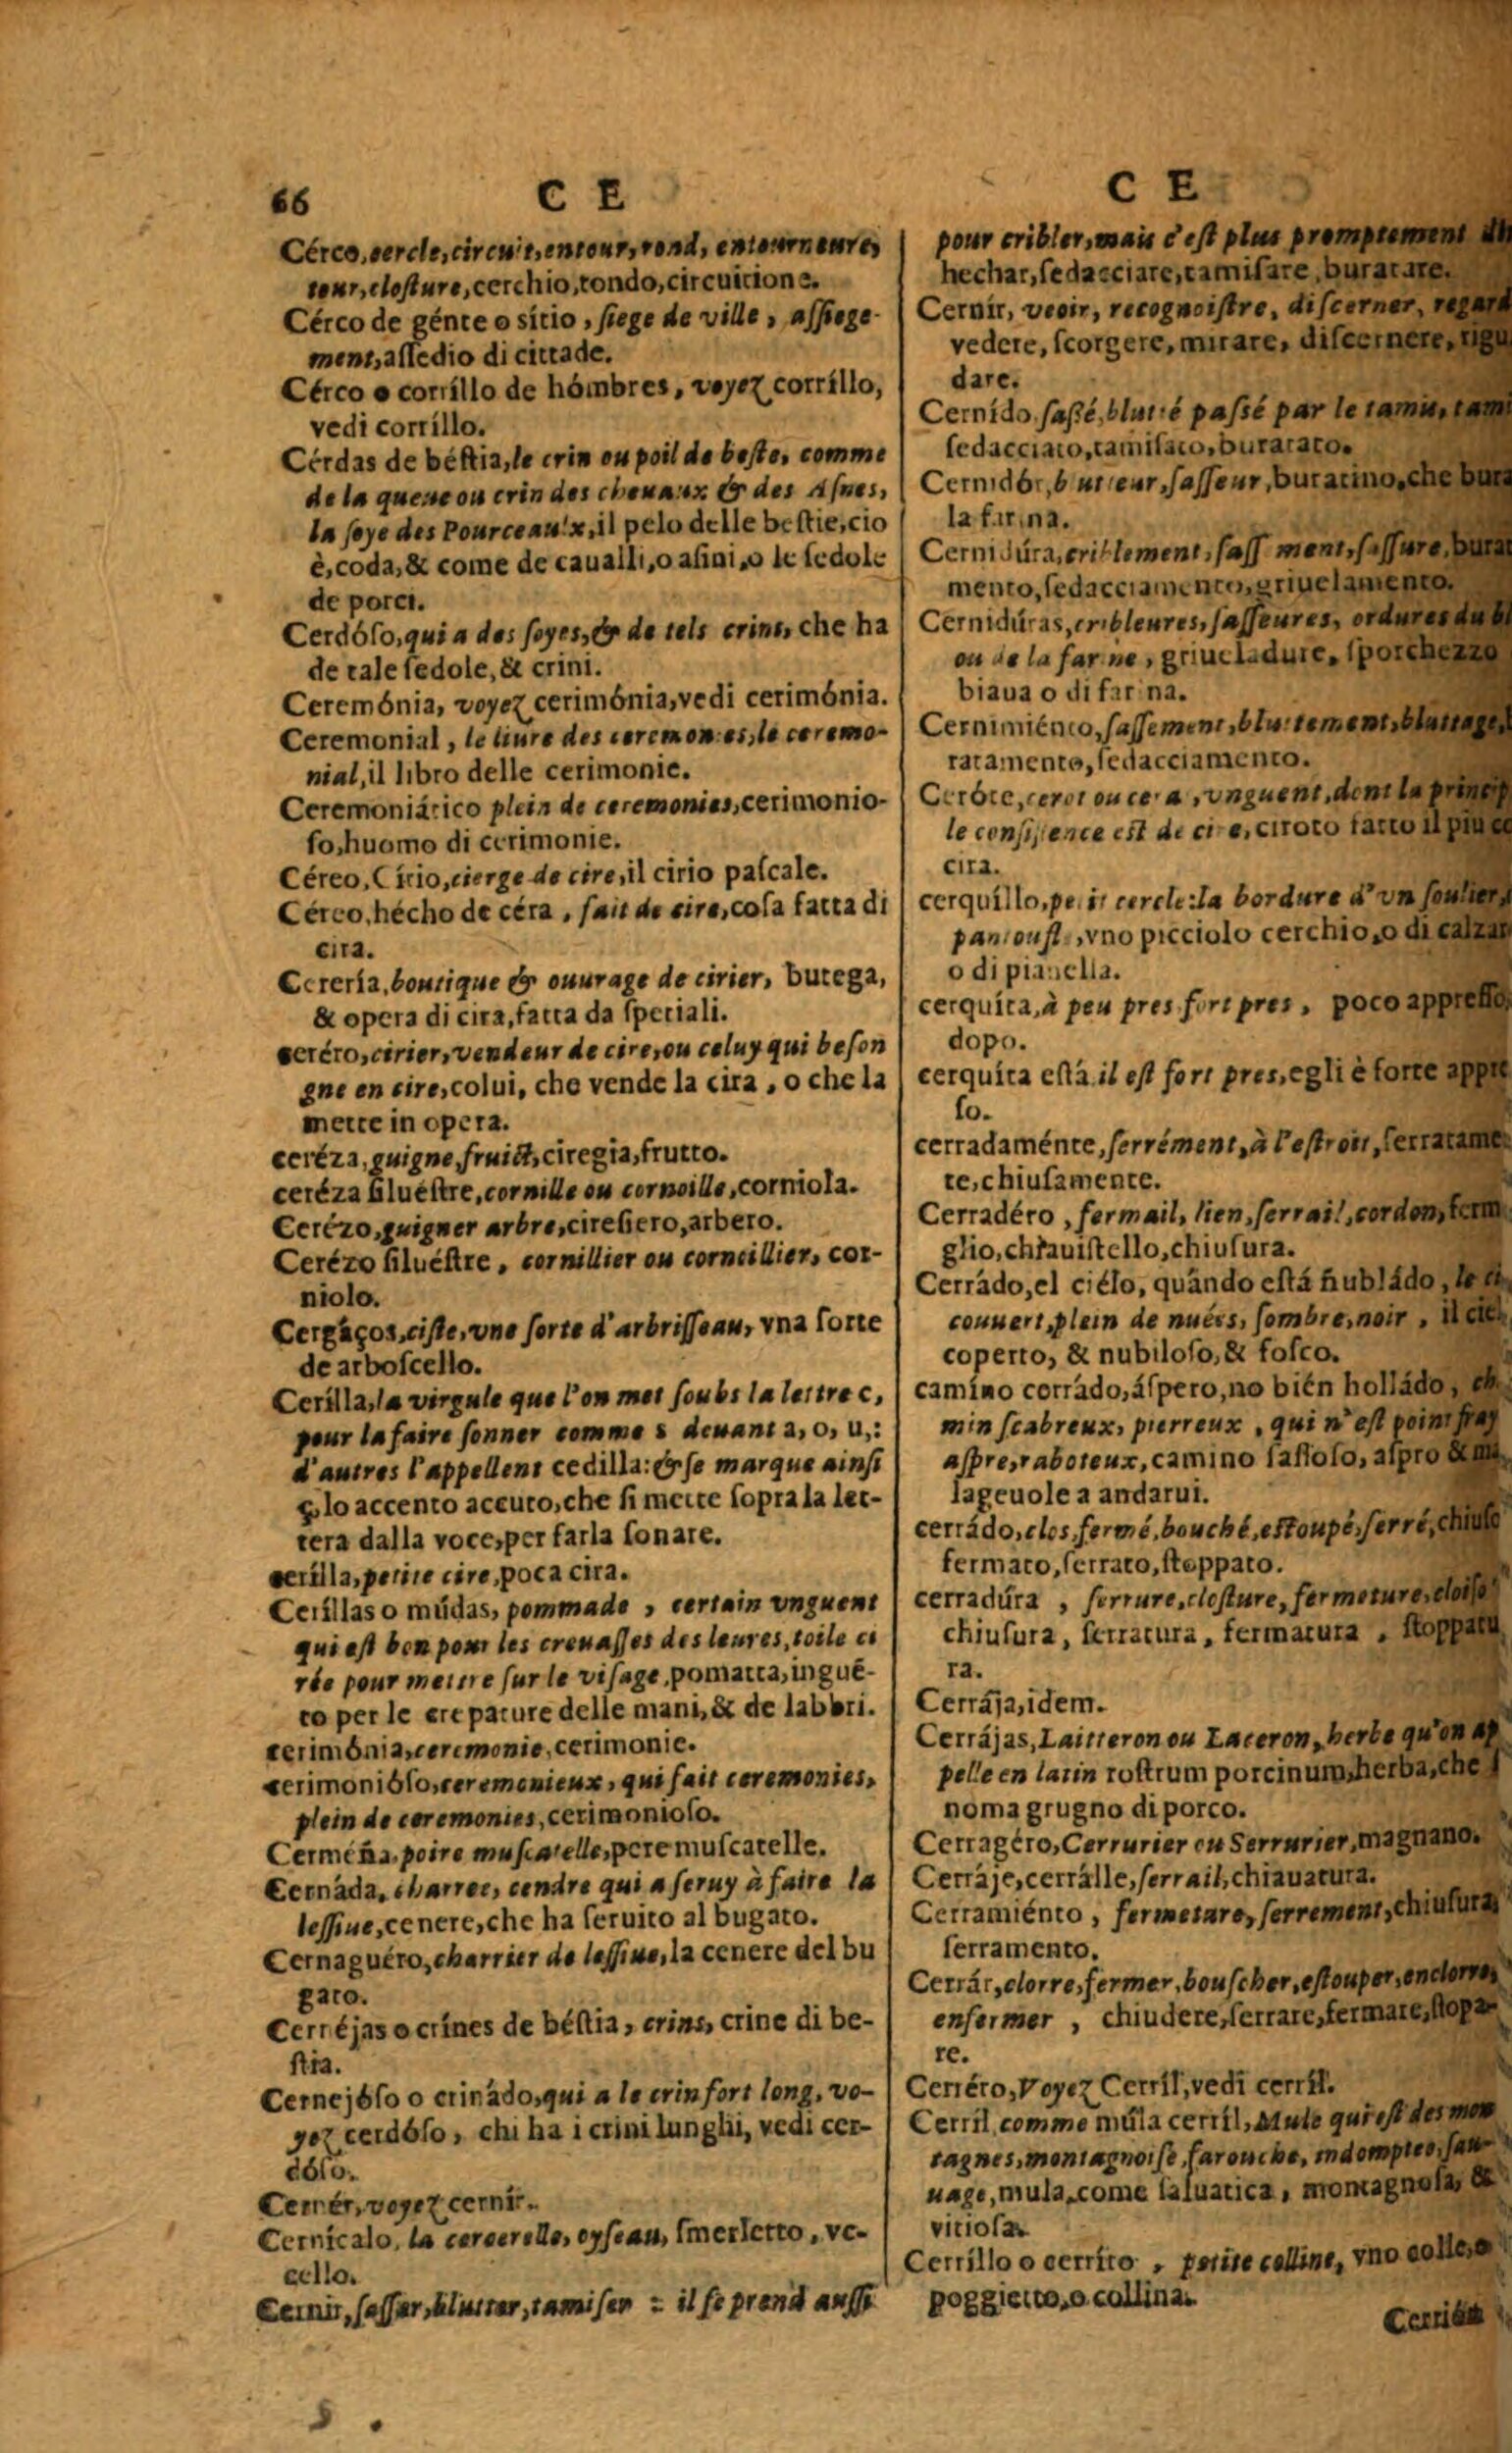 66
C E
Cérco, cercle, circuit, entour, rond, entourneure,
tour, closture, cerchio, tondo, circuitione.
Cérco de génte o sítio, siege de ville, assiege-
ment, assedio di cittade.
Cérco o corríllo de hómbres, voyez corríllo,
vedi corríllo.
Cérdas de béstia, le crin ou poil de beste, comme
de la queue ou crin des cheuaux & des Asnes,
la soye des Pourceaux, il pelo delle bestie, cio
è, coda, & come de caualli, o asini, o le sedole
de porci.
Cerdóso, qui a des soyes, & de tels crins, che ha
de tale sedole, & crini.
Ceremónia, voyez cerimónia, vedi cerimónia.
Ceremonial, le liure des ceremonies, le ceremo-
nial, il libro delle cerimonie.
Ceremoniático plein de ceremonies, cerimonio-
so, huomo di cerimonie.
Céreo, Círio, cierge de cire, il cirio pascale.
Céreo, hécho de céra, fait de cire, cosa fatta di
cira.
Cerería, boutique & ouurage de cirier, butega,
& opera di cira, fatta da speciali.
ceréro, cirier, vendeur de cire, ou celuy qui beson
gne en cire, colui, che vende la cira, o che la
mette in opera.
ceréza, guigne, fruict, ciregia, frutto.
ceréza siluéstre, cornille ou cornoille, corniola.
Cerézo, guignier arbre, ciresiero, arbero.
Cerézo siluéstre, cornillier ou corneillier, cor-
niolo.
Cergáços, ciste, vne sorte d'arbrisseau, vna sorte
de arboscello.
Cerílla, la virgule que l'on met soubs la lettre c,
pour la faire sonner comme s deuant a, o, u,:
d'autres l'appellent cedilla: & se marque ainsi
ç, lo accento accuto, che si mette sopra la let-
tera dalla voce, per farla sonare.
cerílla, petite cire, poca cira.
Ceríllas o múdas, pommade, certain vnguent
qui est bon pour les creuasses des leures, toile ci
rée pour mettre sur le visage, pomatta, inguē-
to per le crepature delle mani, & de labbri.
cerimónia, ceremonie, cerimonie.
cerimonióso, ceremonieux, qui fait ceremonies,
plein de ceremonies, cerimonioso.
Cerméña, poire muscatelle, pere muscatelle.
Cernáda, charree, cendre qui a seruy à faire la
lessiue, cenere, che ha seruito al bugato.
Cernaguéro, charrier de lessiue, la cenere del bu
gato.
Cernéjas o crínes de béstia, crins, crine di be-
stia.
Cernejóso o crinádo, qui a le crin fort long, vo-
yez cerdóso, chi ha i crini lunghi, vedi cer-
dóso.
Cernér, voyez cernír.
Cernícalo, la cercerelle, oyseau, smerletto, vc-
cello.
Cernir, sasser, blutter, tamiser : il se prend aussi
C E
pour cribler, mais c'est plus promptement
hechar, sedacciare, tamisare, buratare.
Cernír, veoir, recognoistre, discerner, regard
vedere, scorgere, mirare, discernere, rigu
dare.
Cernído sassé, blutté passé par le tamis, tami
sedacciato, tamisato, buratato.
Cernidór, blutteur, sasseur, buratino, che bura
la farina.
Cernidúra, criblement, sassement, sassure, burat
mento, sedacciamento, griuelamento.
Cernidúras, cribleures, sasseures, ordures du bl
ou de la farine, griueladure, sporchezzo
biaua o di farina.
Cernimiénto, sassement, bluttement, bluttage,
ratamento, sedacciamento.
Ceróte, cerot ou cera, vnguent, dont la princip
le consistence est de cire, ciroto fatto il piu
cira.
cerquíllo, petit cercle: la bordure d'vn soulier,
pantoufle, vno picciolo cerchio, o di calzar
o di pianella.
cerquíta, à peu pres fort pres, poco appresso,
dopo.
cerquíta está il est fort pres, egli è forte appre
so.
cerradaménte, serrément, à l'estroit, serratame
te, chiusamente.
Cerradéro, fermail, lien, serrail, cordon, ferm
glio, chiauistello, chiusura.
Cerrádo, el ciélo, quándo está ñubládo, le ci
couuert, plein de nuées, sombre, noir, il ciel
coperto, & nubiloso, & fosco.
camíno corrádo, áspero, no bién holládo, ch
min scabreux, pierreux, qui n'est point fray
aspre, raboteux, camino sassoso, aspro & ma
lageuole a andarui.
cerrádo, clos, fermé, bouché, estoupé, serré, chiuso
fermato, serrato, stoppato.
cerradúra, serrure, closture, fermeture, cloiso
chiusura, serratura, fermatura, stoppatu
ra.
Cerrája, idem.
Cerrájas, Laitteron ou Laceron, herbe qu'on ap
pelle en latin rostrum porcinum, herba, che s
noma grugno di porco.
Cerragéro, Cerrurier ou Serrurier, magnano.
Cerráje, cerrálle, serrail, chiauatura.
Cerramiénto, fermeture, serrement, chiusura,
serramento.
Cerrár, clorre, fermer, bouscher, estouper, enclorre,
enfermer, chiudere, serrare, fermare, stopa-
re.
Cerréro, Voyez Cerríl, vedi cerríl.
Cerríl comme múla cerríl, Mule qui est des mon
tagnes, montagnoise, farouche, indomptee, sau-
uage, mula, come saluatica, montagnosa, &
vitiosa.
Cerríllo o cerríto, petite colline, vno colle, o
poggietto, o collina.
Cerrión